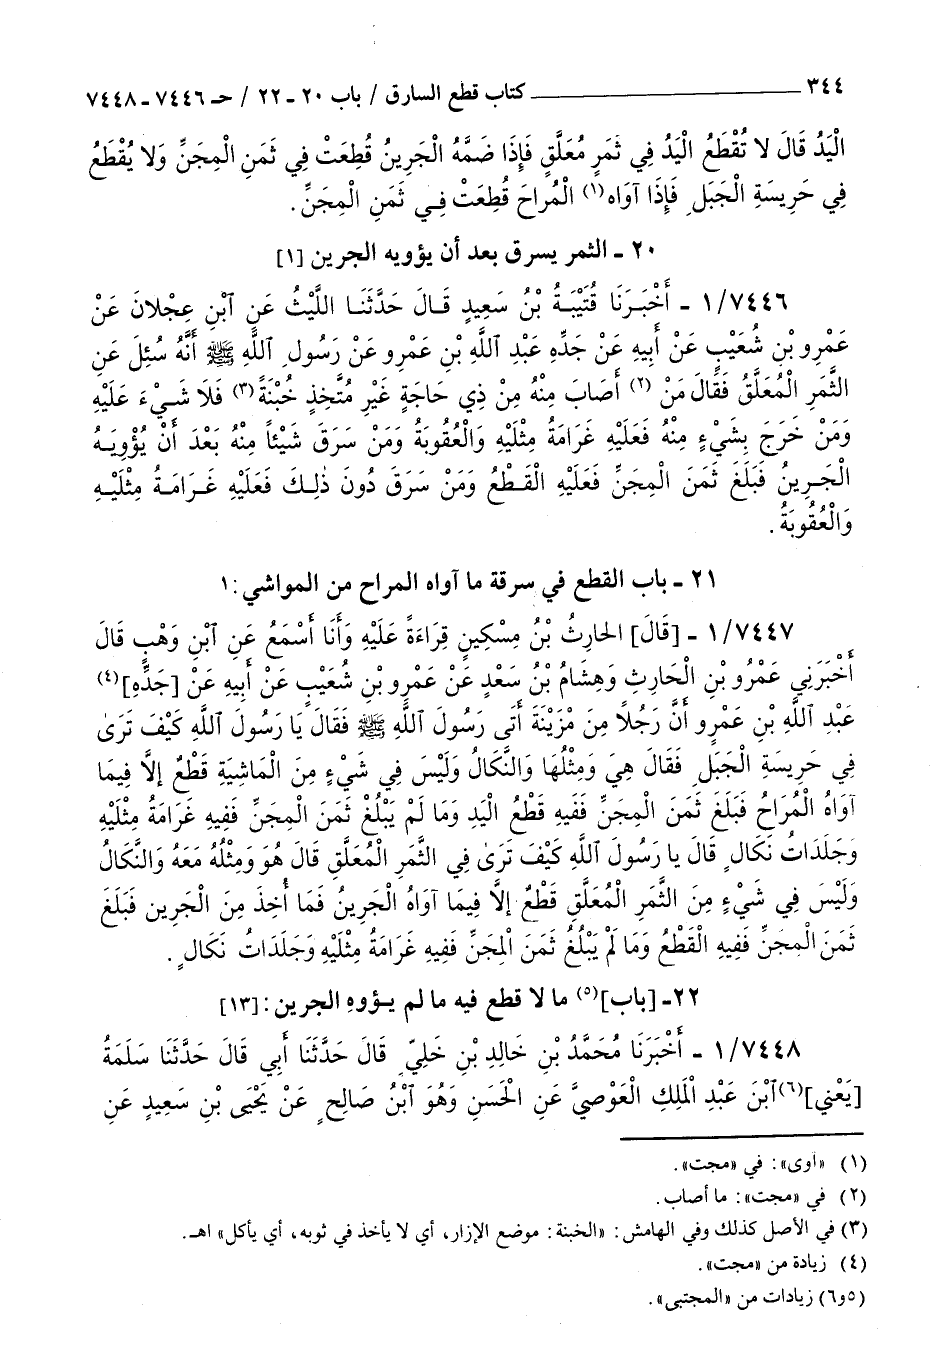 ٣٤٤ ــــــــــــــــ كتاب قطع السارق / باب ٢٠ ـ ٢٢ / حـ ٧٤٤٦ ـ ٧٤٤٨
الْيَدُ قَالَ لا تُقْطَعُ الْيَدُ فِي ثَمَرٍ مُعَلَّقٍ فَإِذَا ضَمَّهُ الْجَرِينُ قُطِعَتْ فِي ثَمَنِ الْمِجَنِّ وَلا يُقْطَعُ
فِي حَرِيسَةِ الْجَبَلِ فَإِذَا آوَاه(١) الْمُرَاحَ قُطِعَتْ فِي ثَمَنِ الْمِجَنِّ.
٢٠ ـ الثمر يسرق بعد أن يؤويه الجرين [١]
١/٧٤٤٦ ـ أَخْبَرَنَا قُتَيْبَةُ بْنُ سَعِيدٍ قَالَ حَدَّثَنَا اللَّيْثُ عَنِ ابْنِ عِجْلانَ عَنْ
عَمْرِو بْنِ شُعَيْبٍ عَنْ أَبِيهِ عَنْ جَدِّهِ عَبْدِ اللَّهِ بْنِ عَمْرٍو عَنْ رَسُولِ اللَّهِ ﷺ أَنَّهُ سُئِلَ عَنِ
الثَّمَرِ الْمُعَلَّقِ فَقَالَ مَنْ (٢) أَصَابَ مِنْهُ مِنْ ذِي حَاجَةٍ غَيْرِ مُتَّخِذٍ خُبْنَةً(٣) فَلَا شَيْءَ عَلَيْهِ
وَمَنْ خَرَجَ بِشَيْءٍ مِنْهُ فَعَلَيْهِ غَرَامَةُ مِثْلَيْهِ وَالْعُقُوبَةُ وَمَنْ سَرَقَ شَيْئاً مِنْهُ بَعْدَ أَنْ يُؤْوِيَهُ
الْجَرِينُ فَبَلَغَ ثَمَنَ الْمِجَنِّ فَعَلَيْهِ الْقَطْعُ وَمَنْ سَرَقَ دُونَ ذٰلِكَ فَعَلَيْهِ غَرَامَةُ مِثْلَيْهِ
وَالْعُقُوبَةُ.
٢١ ـ باب القطع في سرقة ما آواه المراح من المواشي: ١
١/٧٤٤٧ ـ [قَالَ] الحَارِثُ بْنُ مِسْكِينٍ قِرَاءَةً عَلَيْهِ وَأَنَا أَسْمَعُ عَنِ ابْنِ وَهْبٍ قَالَ
أَخْبَرَنِي عَمْرُو بْنِ الْحَارِثِ وَهِشَامُ بْنُ سَعْدٍ عَنْ عَمْرِو بْنِ شُعَيْبٍ عَنْ أَبِيهِ عَنْ [جَدِّهِ](٤)
عَبْدِ اللَّهِ بْنِ عَمْرٍو أَنَّ رَجُلاً مِنَ مُزَيْنَةَ أَتَى رَسُولَ اللَّهِ ﷺ فَقَالَ يَا رَسُولَ اللَّهِ كَيْفَ تَرَىٰ
فِي حَرِيسَةِ الْجَبَلِ فَقَالَ هِيَ وَمِثْلُهَا وَالنَّكَالُ وَلَيْسَ فِي شَيْءٍ مِنَ الْمَاشِيَةِ قَطْعٌ إِلاَّ فِيمَا
آوَاهُ الْمُرَاحُ فَبَلَغَ ثَمَنَ الْمِجَنِّ فَفِيهِ قَطْعُ الْيَدِ وَمَا لَمْ يَبْلُغْ ثَمَنَ الْمِجَنِّ فَفِيهِ غَرَامَةُ مِثْلَيْهِ
وَجَلَدَاتُ نَكَالٍ قَالَ يا رَسُولَ اللَّهِ كَيْفَ تَرَىٰ فِي الثَّمَرِ الْمُعَلَّقِ قَالَ هُوَ وَمِثْلُهُ مَعَهُ وَالنَّكَالُ
وَلَيْسَ فِي شَيْءٍ مِنَ الثَّمَرِ الْمُعَلَّقِ قَطْعٌ إِلاَّ فِيمَا آوَاهُ الْجَرِينُ فَمَا أُخِذَ مِنَ الْجَرِينِ فَبَلَغَ
ثَمَنَ الْمِجَنِّ فَفِيهِ الْقَطْعُ وَمَا لَمْ يَبْلُغُ ثَمَنَ الْمِجَنِّ فَفِيهِ غَرَامَةُ مِثْلَيْهِ وَجَلَدَاتُ نَكَالٍ.
٢٢ـ [باب](٥) ما لا قطع فيه ما لم يـؤوهِ الجرين: [١٣]
١/٧٤٤٨ ـ أَخْبَرَنَا مُحَمَّدُ بْنِ خَالِدِ بْنِ خَلِيٍّ قَالَ حَدَّثَنَا أَبِي قَالَ حَدَّثَنَا سَلَمَةُ
[يَعْنِي](٦) ابْنَ عَبْدِ الْمَلِكِ الْعَوْصِيَّ عَنِ الْحَسَنِ وَهُوَ ابْنُ صَالِحٍ عَنْ يَحْيَى بْنِ سَعِيدٍ عَنِ
(١) «أوى»: في «مجت».
(٢) في «مجت»: ما أصاب.
(٣) في الأصل كذلك وفي الهامش: «الخبنة: موضع الإزار، أي لا يأخذ في ثوبه، أي يأكل» اهـ.
(٤) زيادة من «مجت».
(٥ و٦) زيادات من «المجتبى».